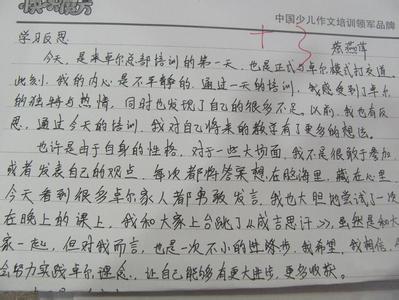 快乐魔方
中国少儿作文培训领军品牌
学习反思
蔡燕萍
今天，是来卓尔总部培训的第一天，也是正式与卓尔模式打交道。
此刻，我的内心是不平静的，通过一天的培训，我感受到了卓尔
的独特与热情，同时也发现了自己的很多不足。以前，我也有反
思，通过今天的培训，我对自己将来的教学有了更多的想法。
也许是由于自身的性格，对于一些大场面，我不是很敢于参加
或者发表自己的观点，每次都将答案想在脑海里，藏在心里。
今天看到很多卓尔家人都勇敢发言，我也大胆地尝试了一次
在晚上的课上，我和大家上台跳了《成语思汗》，虽然是和大
家一起，但对我而言，也是一次不小的进步，我希望，我相信，
会努力实践卓尔理念，让自己能够有更大进步，更多收获。